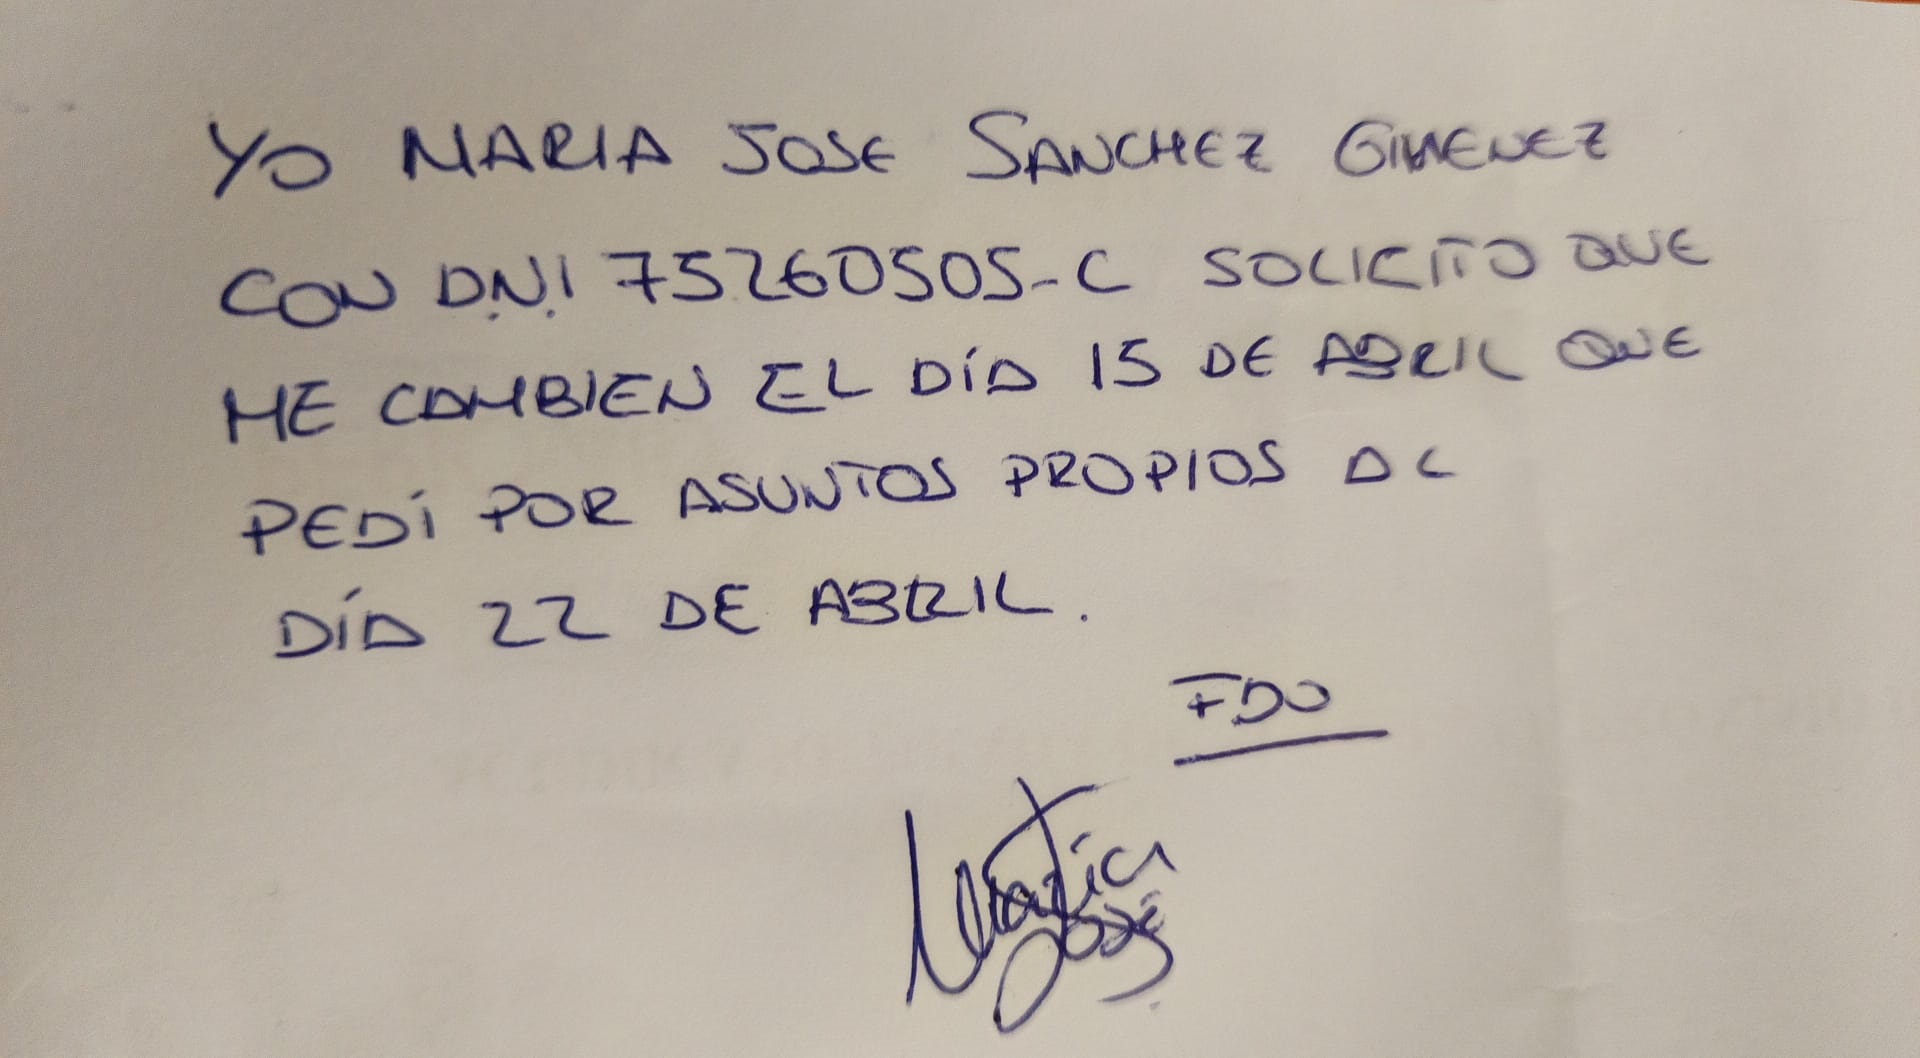 YO MARIA JOSE SANCHEZ GIMENEZ
CON D.N.I 75260505-C SOLICITO QUE
ME CAMBIEN EL DÍA 15 DE ABRIL QUE
PEDÍ POR ASUNTOS PROPIOS AL
DÍA 22 DE ABRIL.
FDO
María
José